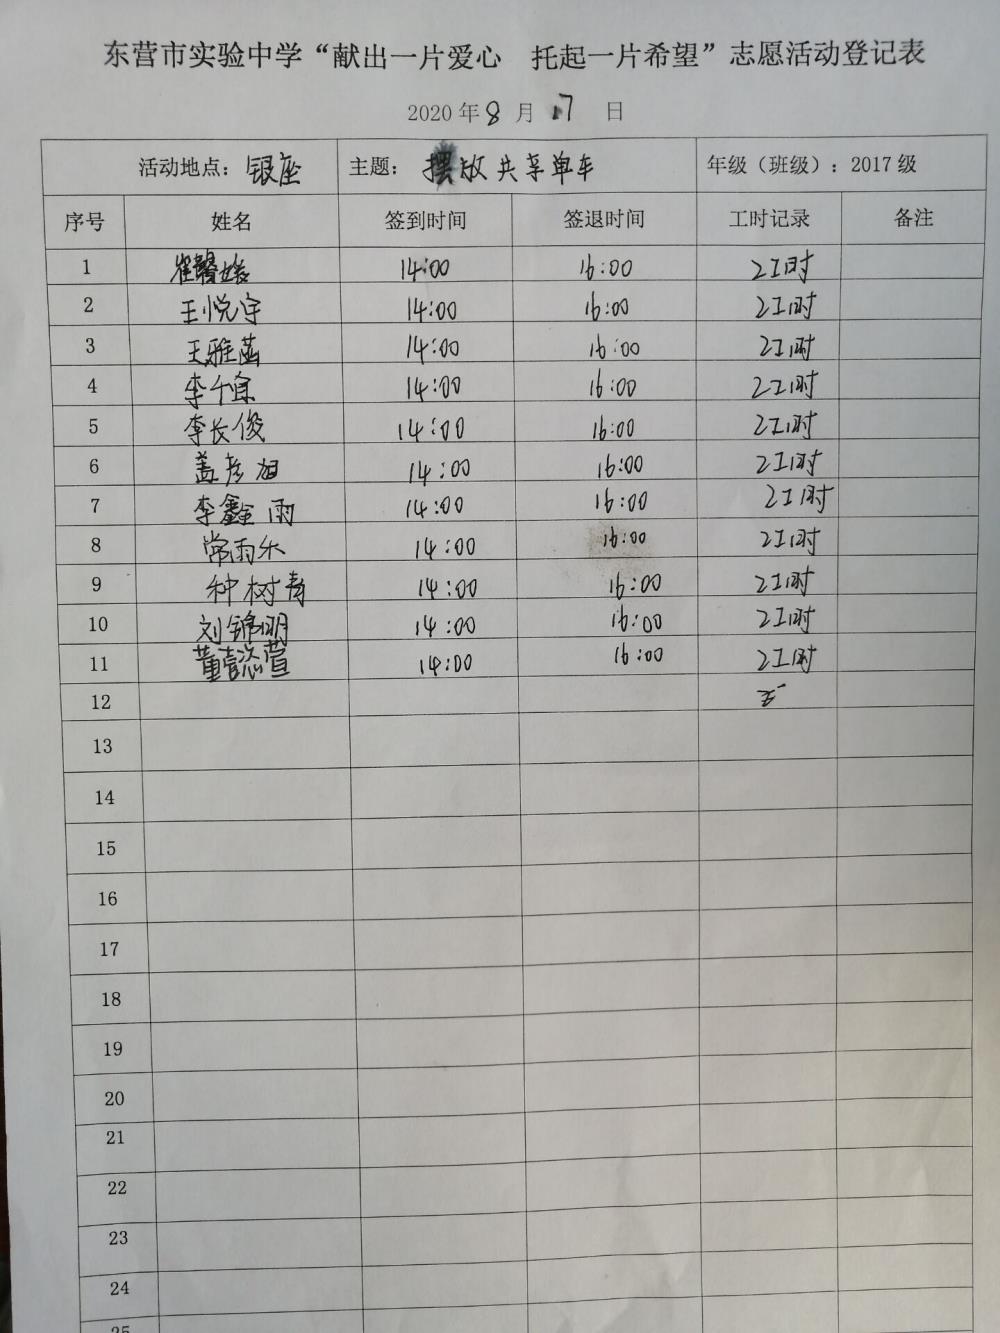 东营市实验中学“献出一片爱心 托起一片希望”志愿活动登记表
2020年8月17日
活动地点：银座 主题：摆放共享单车 年级（班级）：2017级
序号 姓名 签到时间 签退时间 工时记录 备注
1 崔馨 14:00 16:00 2工时
2 王悦宇 14:00 16:00 2工时
3 王雅菡 14:00 16:00 2工时
4 李 14:00 16:00 2工时
5 李长俊 14:00 16:00 2工时
6 盖彦旭 14:00 16:00 2工时
7 李鑫雨 14:00 16:00 2工时
8 常雨乐 14:00 16:00 2工时
9 种树青 14:00 16:00 2工时
10 刘锦明 14:00 16:00 2工时
11 董懿萱 14:00 16:00 2工时
12
13
14
15
16
17
18
19
20
21
22
23
24
25